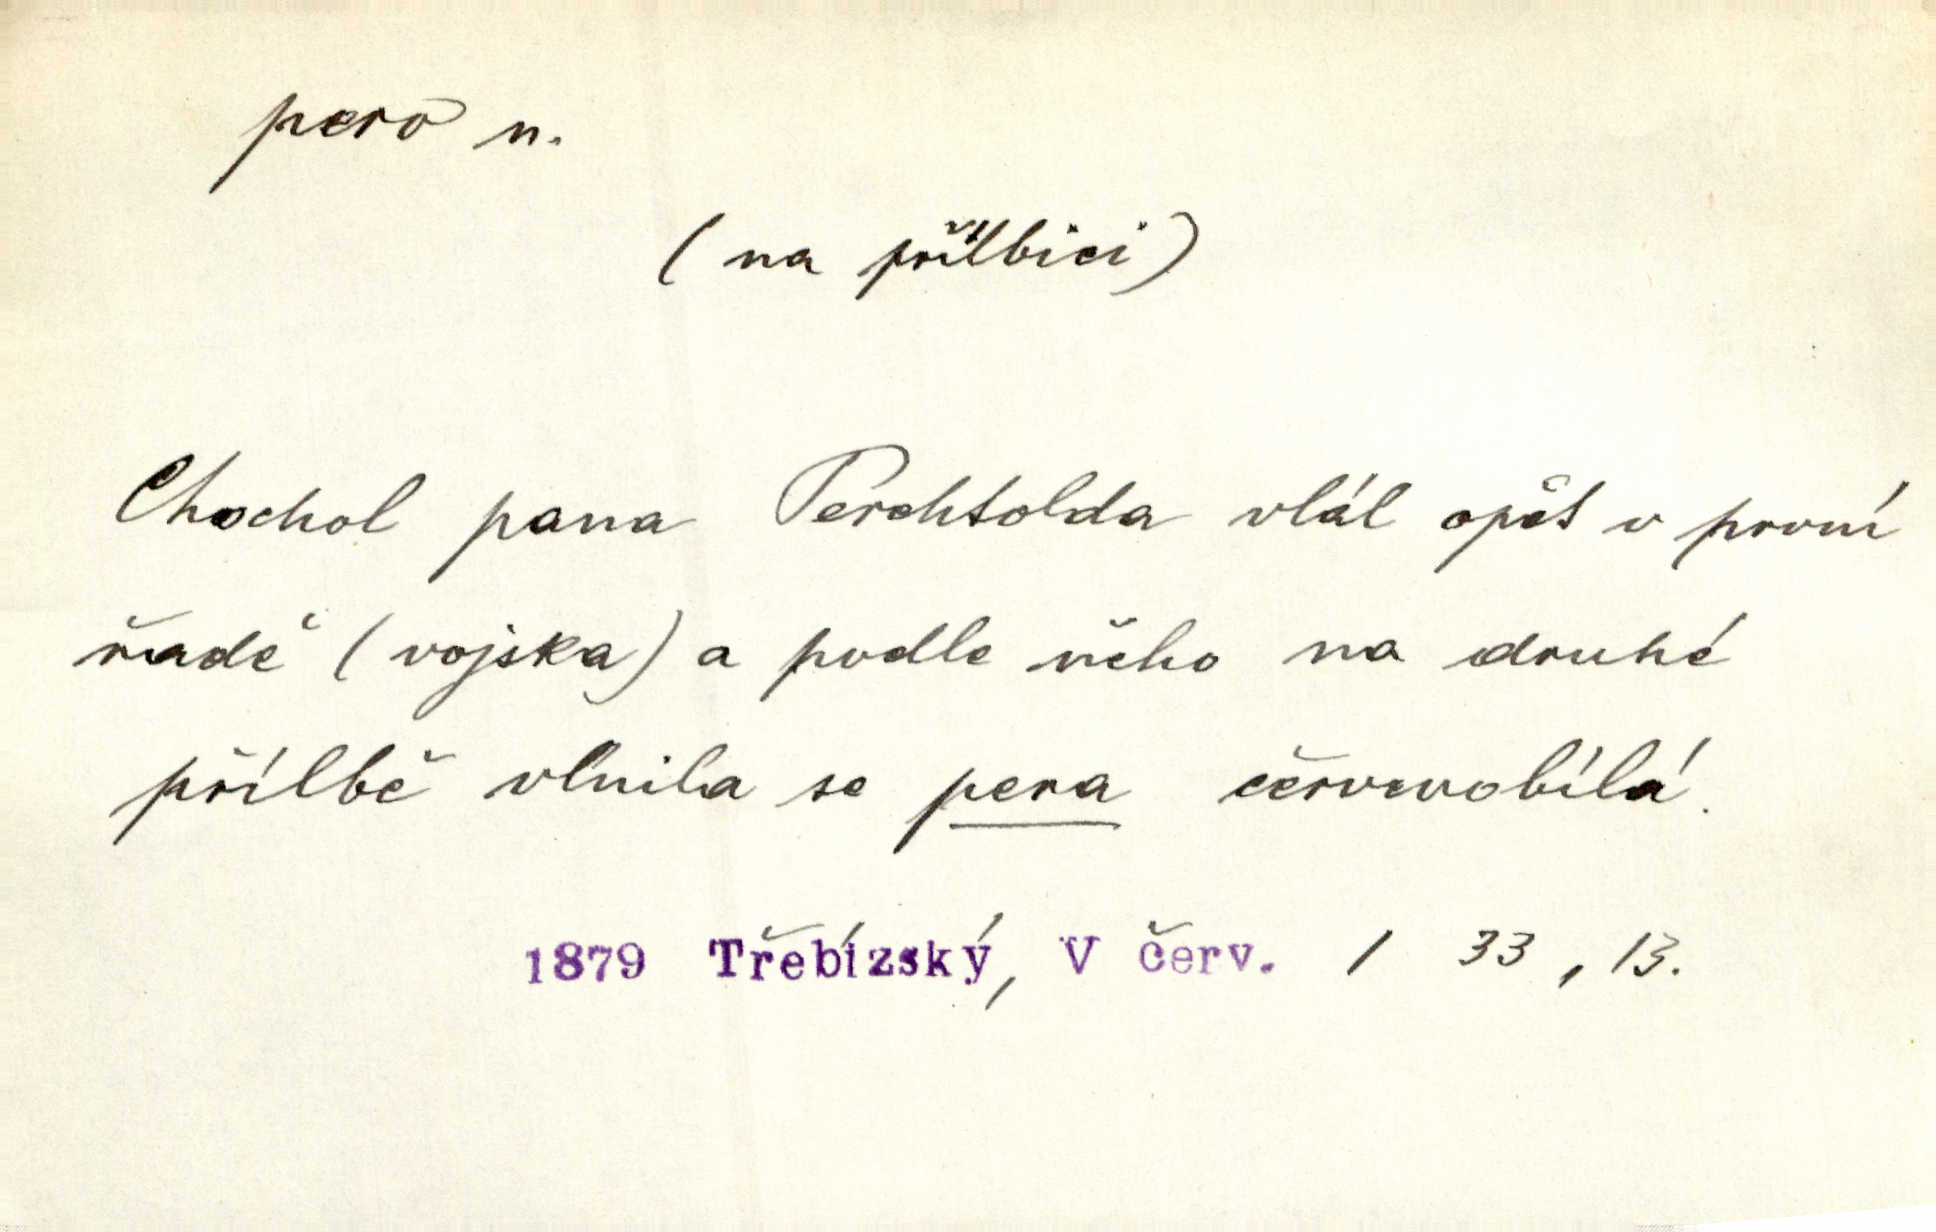 pero n.
(na přílbici)
Chochol pana Perchtolda vlál opět v první
řadě (vojska) a podle něho na druhé
přílbě vlnila se pera červenobílá.
1879 Třebízský, V červ. 1 33, 13.